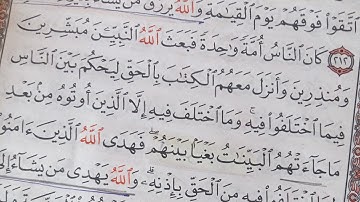 اتَّقَوْا فَوْقَهُمْ يَوْمَ الْقِيَامَةِ وَاللَّهُ يَرْزُقُ مَن يَشَاءُ
٢١٢ كَانَ النَّاسُ أُمَّةً وَاحِدَةً فَبَعَثَ اللَّهُ النَّبِيِّينَ مُبَشِّرِينَ
وَمُنذِرِينَ وَأَنزَلَ مَعَهُمُ الْكِتَابَ بِالْحَقِّ لِيَحْكُمَ بَيْنَ النَّاسِ
فِيمَا اخْتَلَفُوا فِيهِ وَمَا اخْتَلَفَ فِيهِ إِلَّا الَّذِينَ أُوتُوهُ مِن بَعْدِ
مَا جَاءَتْهُمُ الْبَيِّنَاتُ بَغْيًا بَيْنَهُمْ فَهَدَى اللَّهُ الَّذِينَ ءَامَنُوا
اخْتَلَفُوا فِيهِ مِنَ الْحَقِّ بِإِذْنِهِ وَاللَّهُ يَهْدِى مَن يَشَاءُ إِلَى